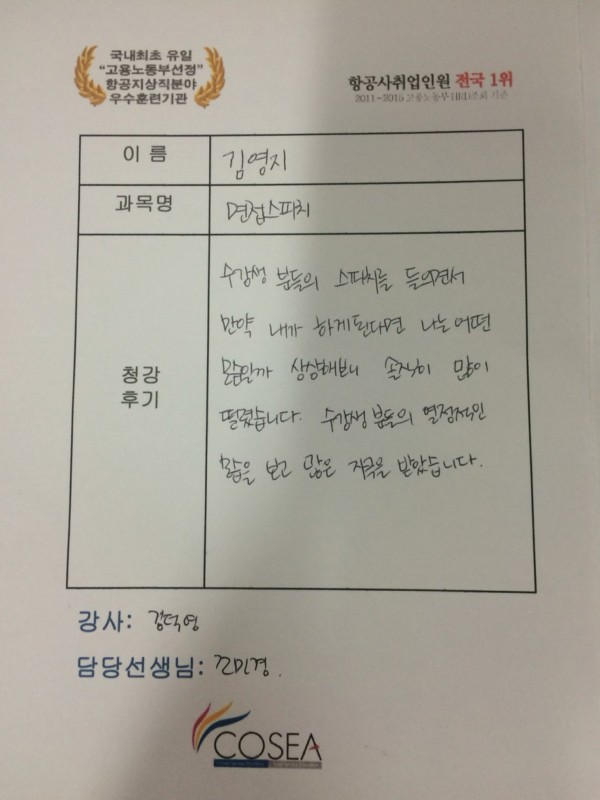 국내최초 유일
"고용노동부선정"
항공지상직분야
우수훈련기관
항공사취업인원 전국 1위
2011~2015 고용노동부 HRD조회 기준
이 름
김영지
과목명
면접스피치
청강
후기
수강생 분들의 스피치를 들으면서
만약 내가 하게된다면 나는 어떤
모습일까 상상해보니 솔직히 많이
떨렸습니다. 수강생 분들의 열정적인
모습을 보고 많은 자극을 받았습니다.
강사: 김덕영
담당선생님: 조미경.
COSEA